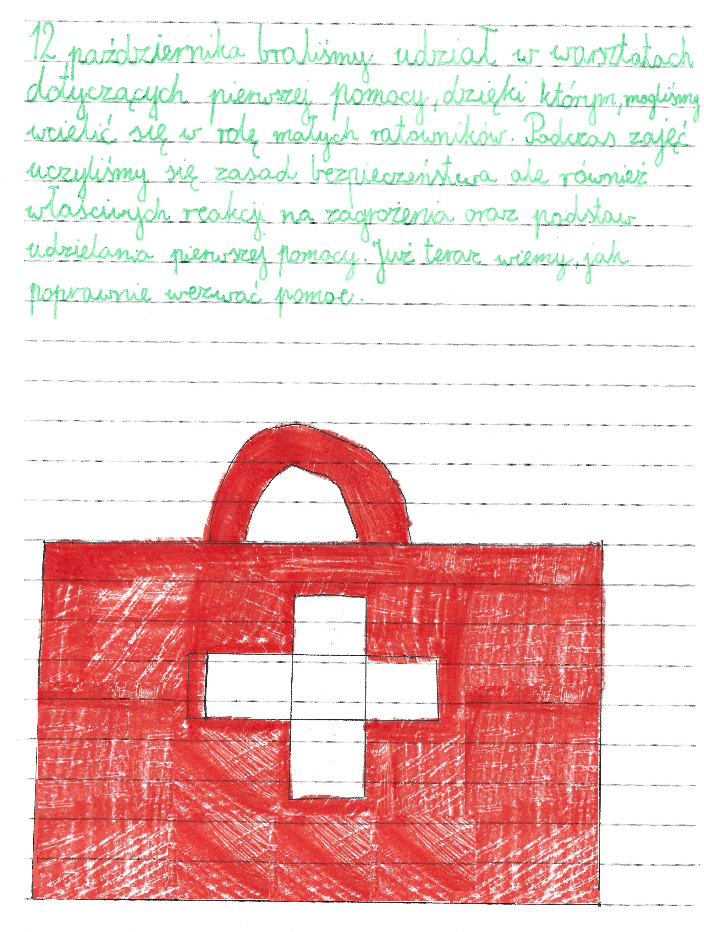 12 października braliśmy udział w warsztatach
dotyczących pierwszej pomocy, dzięki którym, mogliśmy
wcielić się w rolę małych ratowników. Podczas zajęć
uczyliśmy się zasad bezpieczeństwa ale również
właściwych reakcji na zagrożenia oraz podstaw
udzielania pierwszej pomocy. Już teraz wiemy, jak
poprawnie wezwać pomoc.